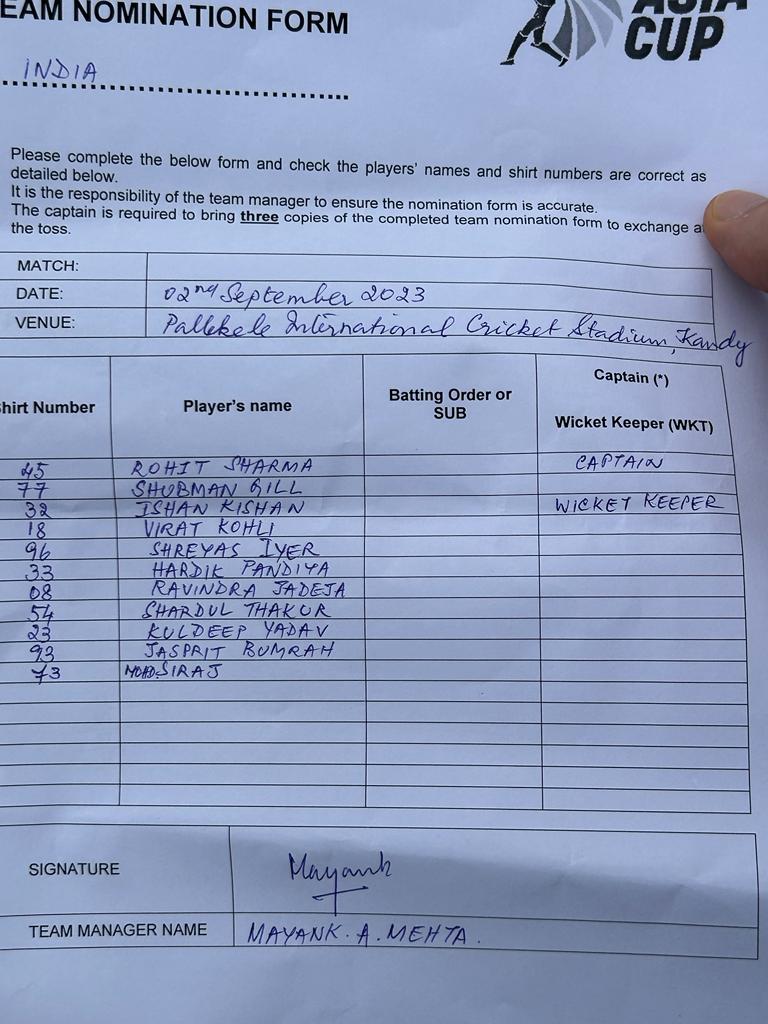 EAM NOMINATION FORM
ASIA
CUP
INDIA
Please complete the below form and check the players' names and shirt numbers are correct as
detailed below.
It is the responsibility of the team manager to ensure the nomination form is accurate.
The captain is required to bring three copies of the completed team nomination form to exchange a
the toss.
MATCH:
DATE: 02nd September 2023
VENUE: Pallekele International Cricket Stadium, Kandy
hirt Number Player's name Batting Order or SUB Captain (*) Wicket Keeper (WKT)
45 ROHIT SHARMA CAPTAIN
77 SHUBMAN GILL
32 ISHAN KISHAN WICKET KEEPER
18 VIRAT KOHLI
96 SHREYAS IYER
33 HARDIK PANDIYA
08 RAVINDRA JADEJA
54 SHARDUL THAKUR
23 KULDEEP YADAV
93 JASPRIT BUMRAH
73 MOHD. SIRAJ
SIGNATURE Mayank
TEAM MANAGER NAME MAYANK. A. MEHTA.